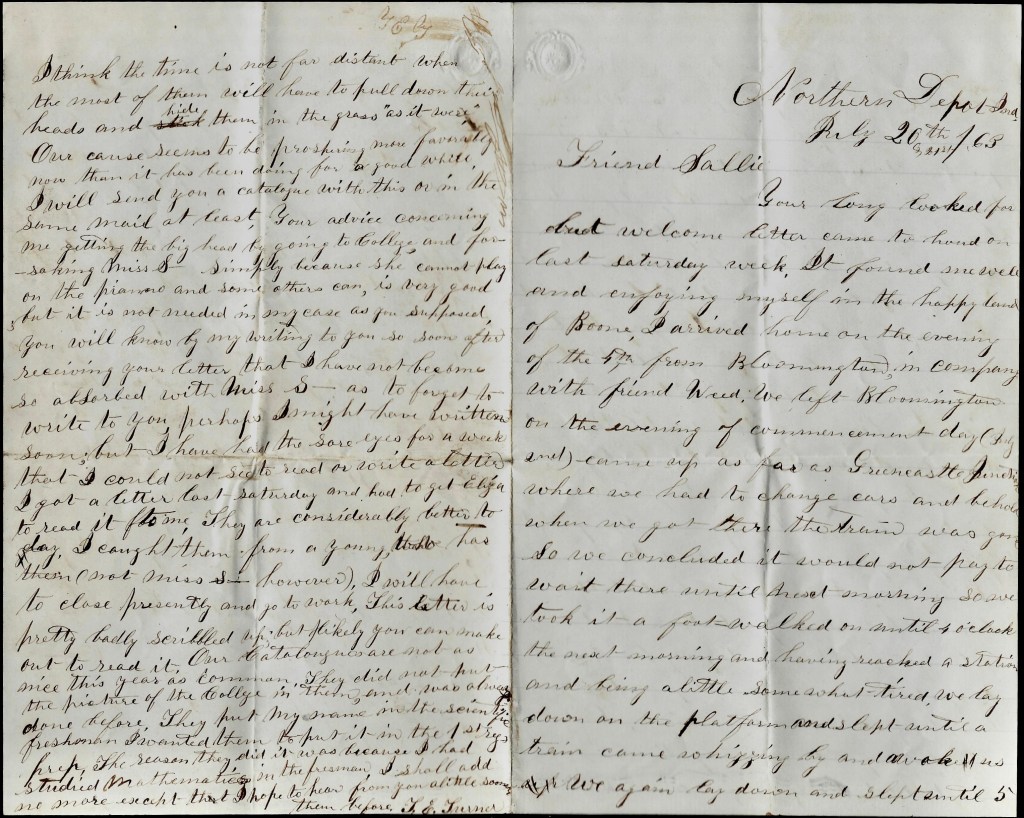 Northern Depot Ind.
July 20th /63
& 21st
Friend Sallie
Your long looked for
but welcome letter came to hand on
last saturday week, It found me well
and enjoying myself in the happy land
of Boone, I arrived home on the evening
of the 5th from Bloomington, in company
with friend Weed, We left Bloomington
on the evening of commencement day (July
2nd) came up as far as Greencastle Junction
where we had to change cars and behold
when we got there the train was gone
So we concluded it would not pay to
wait there until next morning so we
took it a foot-walked on until 4 o'clock
the next morning and having reached a station
and being a little somewhat tired, we lay
down on the platform and slept until a
train came whizzing by and awoke us
We again lay down and slept until 5
Y C Y
I think the time is not far distant when
the most of them will have to pull down their
hide
heads and stick them in the grass "as it were"
Our cause seems to be prospering more favorably
now than it has been doing for a good while,
I will send you a catalogue with this or in the
same mail at least, Your advice concerning
me getting the big head by going to College and for-
-saking Miss S— simply because she cannot play
on the pianno and some others can, is very good
but it is not needed in my case as you supposed,
You will know by my writing to you so soon after
receiving your letter that I have not become
so absorbed with Miss S— as to forget to
write to you, perhaps I might have written
soon, but I have had the sore eyes for a week
that I could not see to read or write a letter
I got a letter last saturday and had to get Eliza
to read it to me, They are considerably better to
day, I caught them from a young, who has
them (not miss S— however), I will have
to close presently and go to work, This letter is
pretty badly scribbled up, but likely you can make
out to read it. Our Catalougues are not as
nice this year as common, They did not put
the picture of the College in them, and was always
done before, They put my name in the scientific
freshman I wanted them to put it in the 1st reg
prep, The reason they did it was because I had
studied Mathematics in the fresman, I shall add
no more except that I hope to hear from you a little sooner
them before T. E. Turner